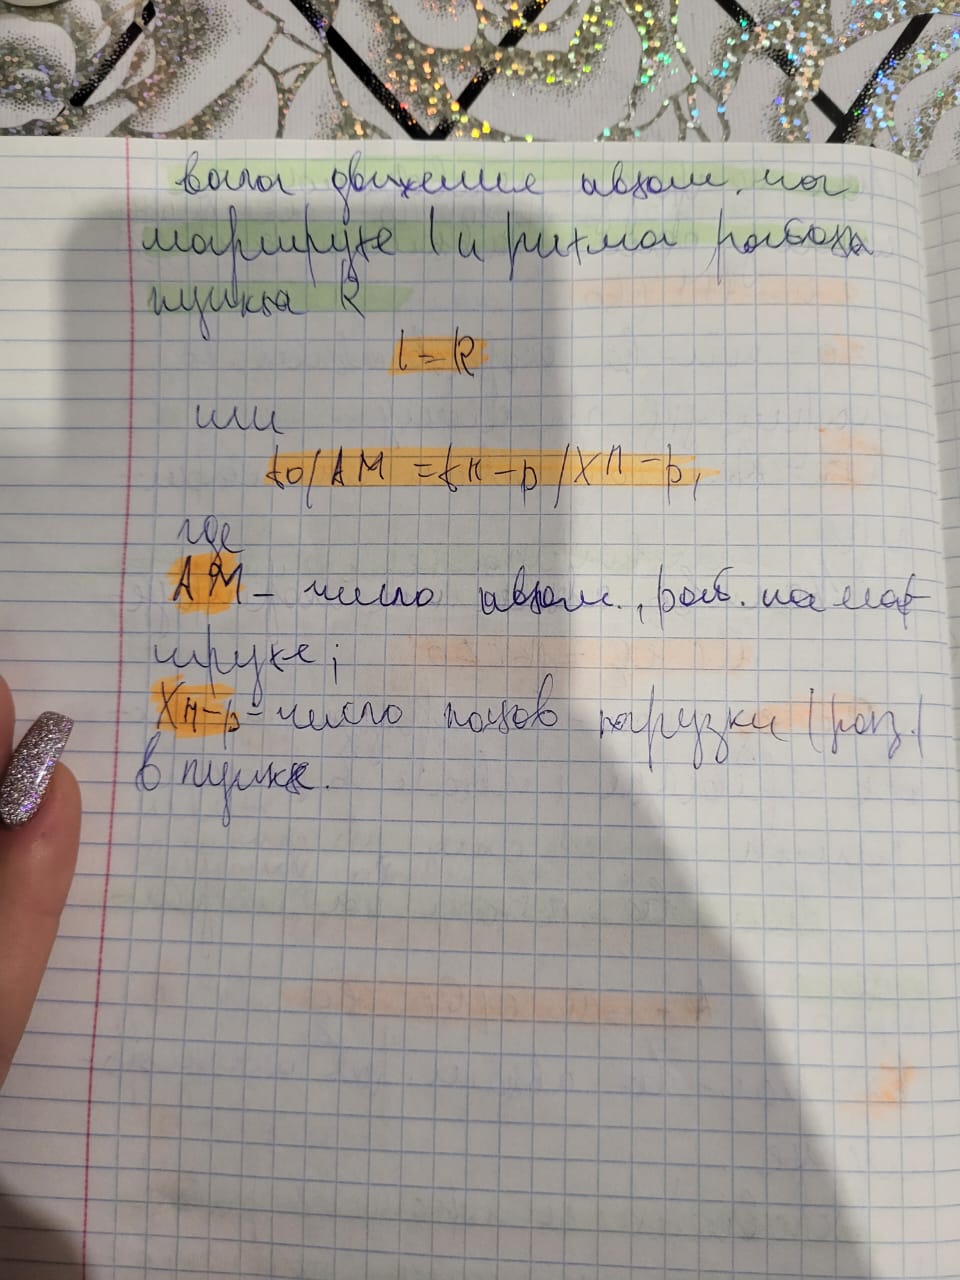 вала движения автом. на
маршруте l и ритма работы
пункта R
l = R
или
to/AM = tп-р/Xп-р,
где
AM – число автом., раб. на мар-
шруте;
Xп-р – число постов погрузки (раз.)
в пункте.